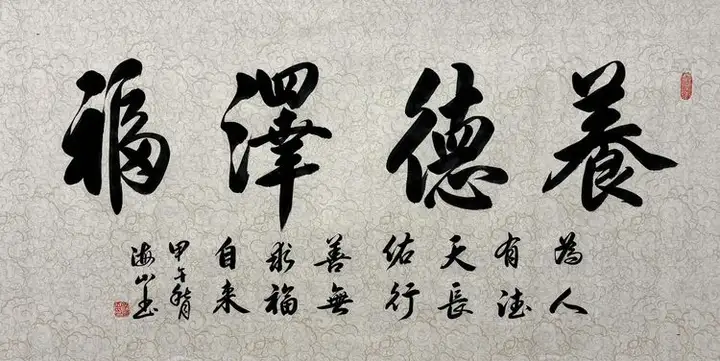 養德澤福
為人
有德
天長
佑行
善無
求福
自来
甲午秋月
海山书